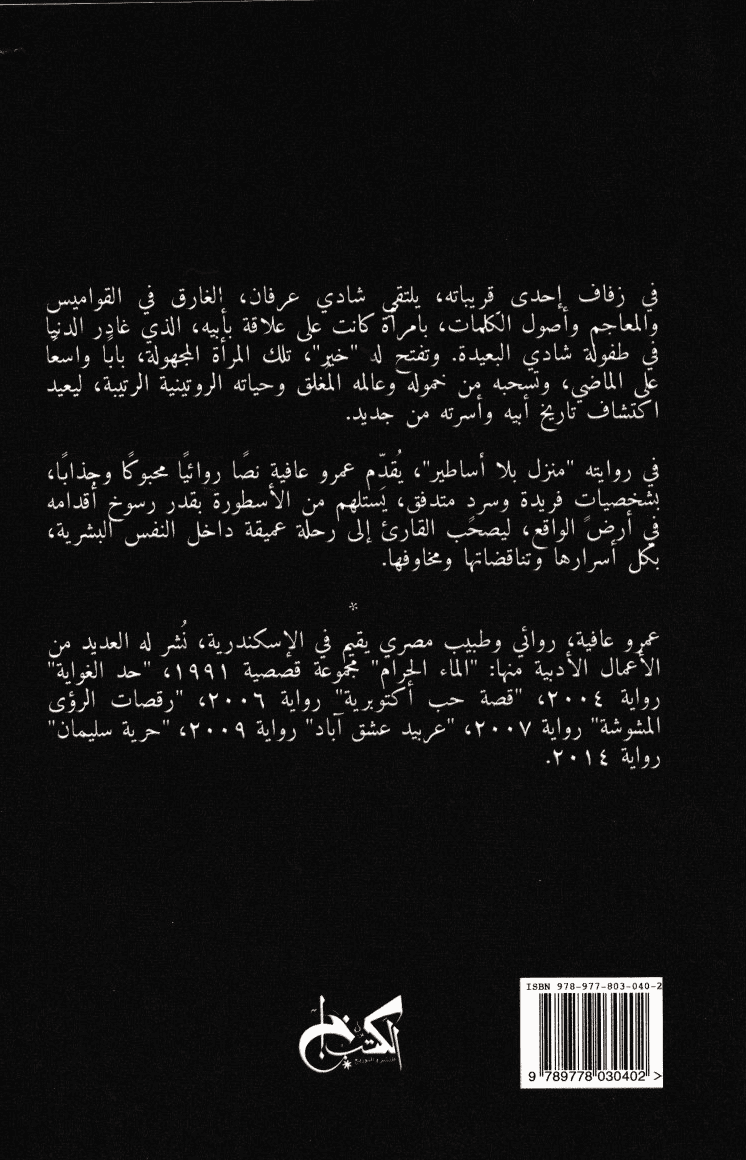 في زفاف إحدى قريباته، يلتقي شادي عرفان، الغارق في القواميس
والمعاجم وأصول الكلمات، بامرأة كانت على علاقة بأبيه، الذي غادر الدنيا
في طفولة شادي البعيدة. وتفتح له "خير"، تلك المرأة المجهولة، بابًا واسعًا
على الماضي، وتسحبه من خموله وعالمه المُغلق وحياته الروتينية الرتيبة، ليعيد
اكتشاف تاريخ أبيه وأسرته من جديد.
في روايته "منزل بلا أساطير"، يُقدّم عمرو عافية نصًا روائيًا محبوكًا وجذابًا،
بشخصيات فريدة وسرد متدفق، يستلهم من الأسطورة بقدر رسوخ أقدامه
في أرض الواقع، ليصحب القارئ إلى رحلة عميقة داخل النفس البشرية،
بكل أسرارها وتناقضاتها ومخاوفها.
*
عمرو عافية، روائي وطبيب مصري يقيم في الإسكندرية، نُشر له العديد من
الأعمال الأدبية منها: "الماء الحرام" مجموعة قصصية ١٩٩١، "حد الغواية"
رواية ٢٠٠٤، "قصة حب أكتوبرية" رواية ٢٠٠٦، "رقصات الرؤى
المشوشة" رواية ٢٠٠٧، "عربيد عشق آباد" رواية ٢٠٠٩، "حرية سليمان"
رواية ٢٠١٤.
الكتب خان
للنشر والتوزيع
ISBN 978-977-803-040-2
9 789778 030402 >